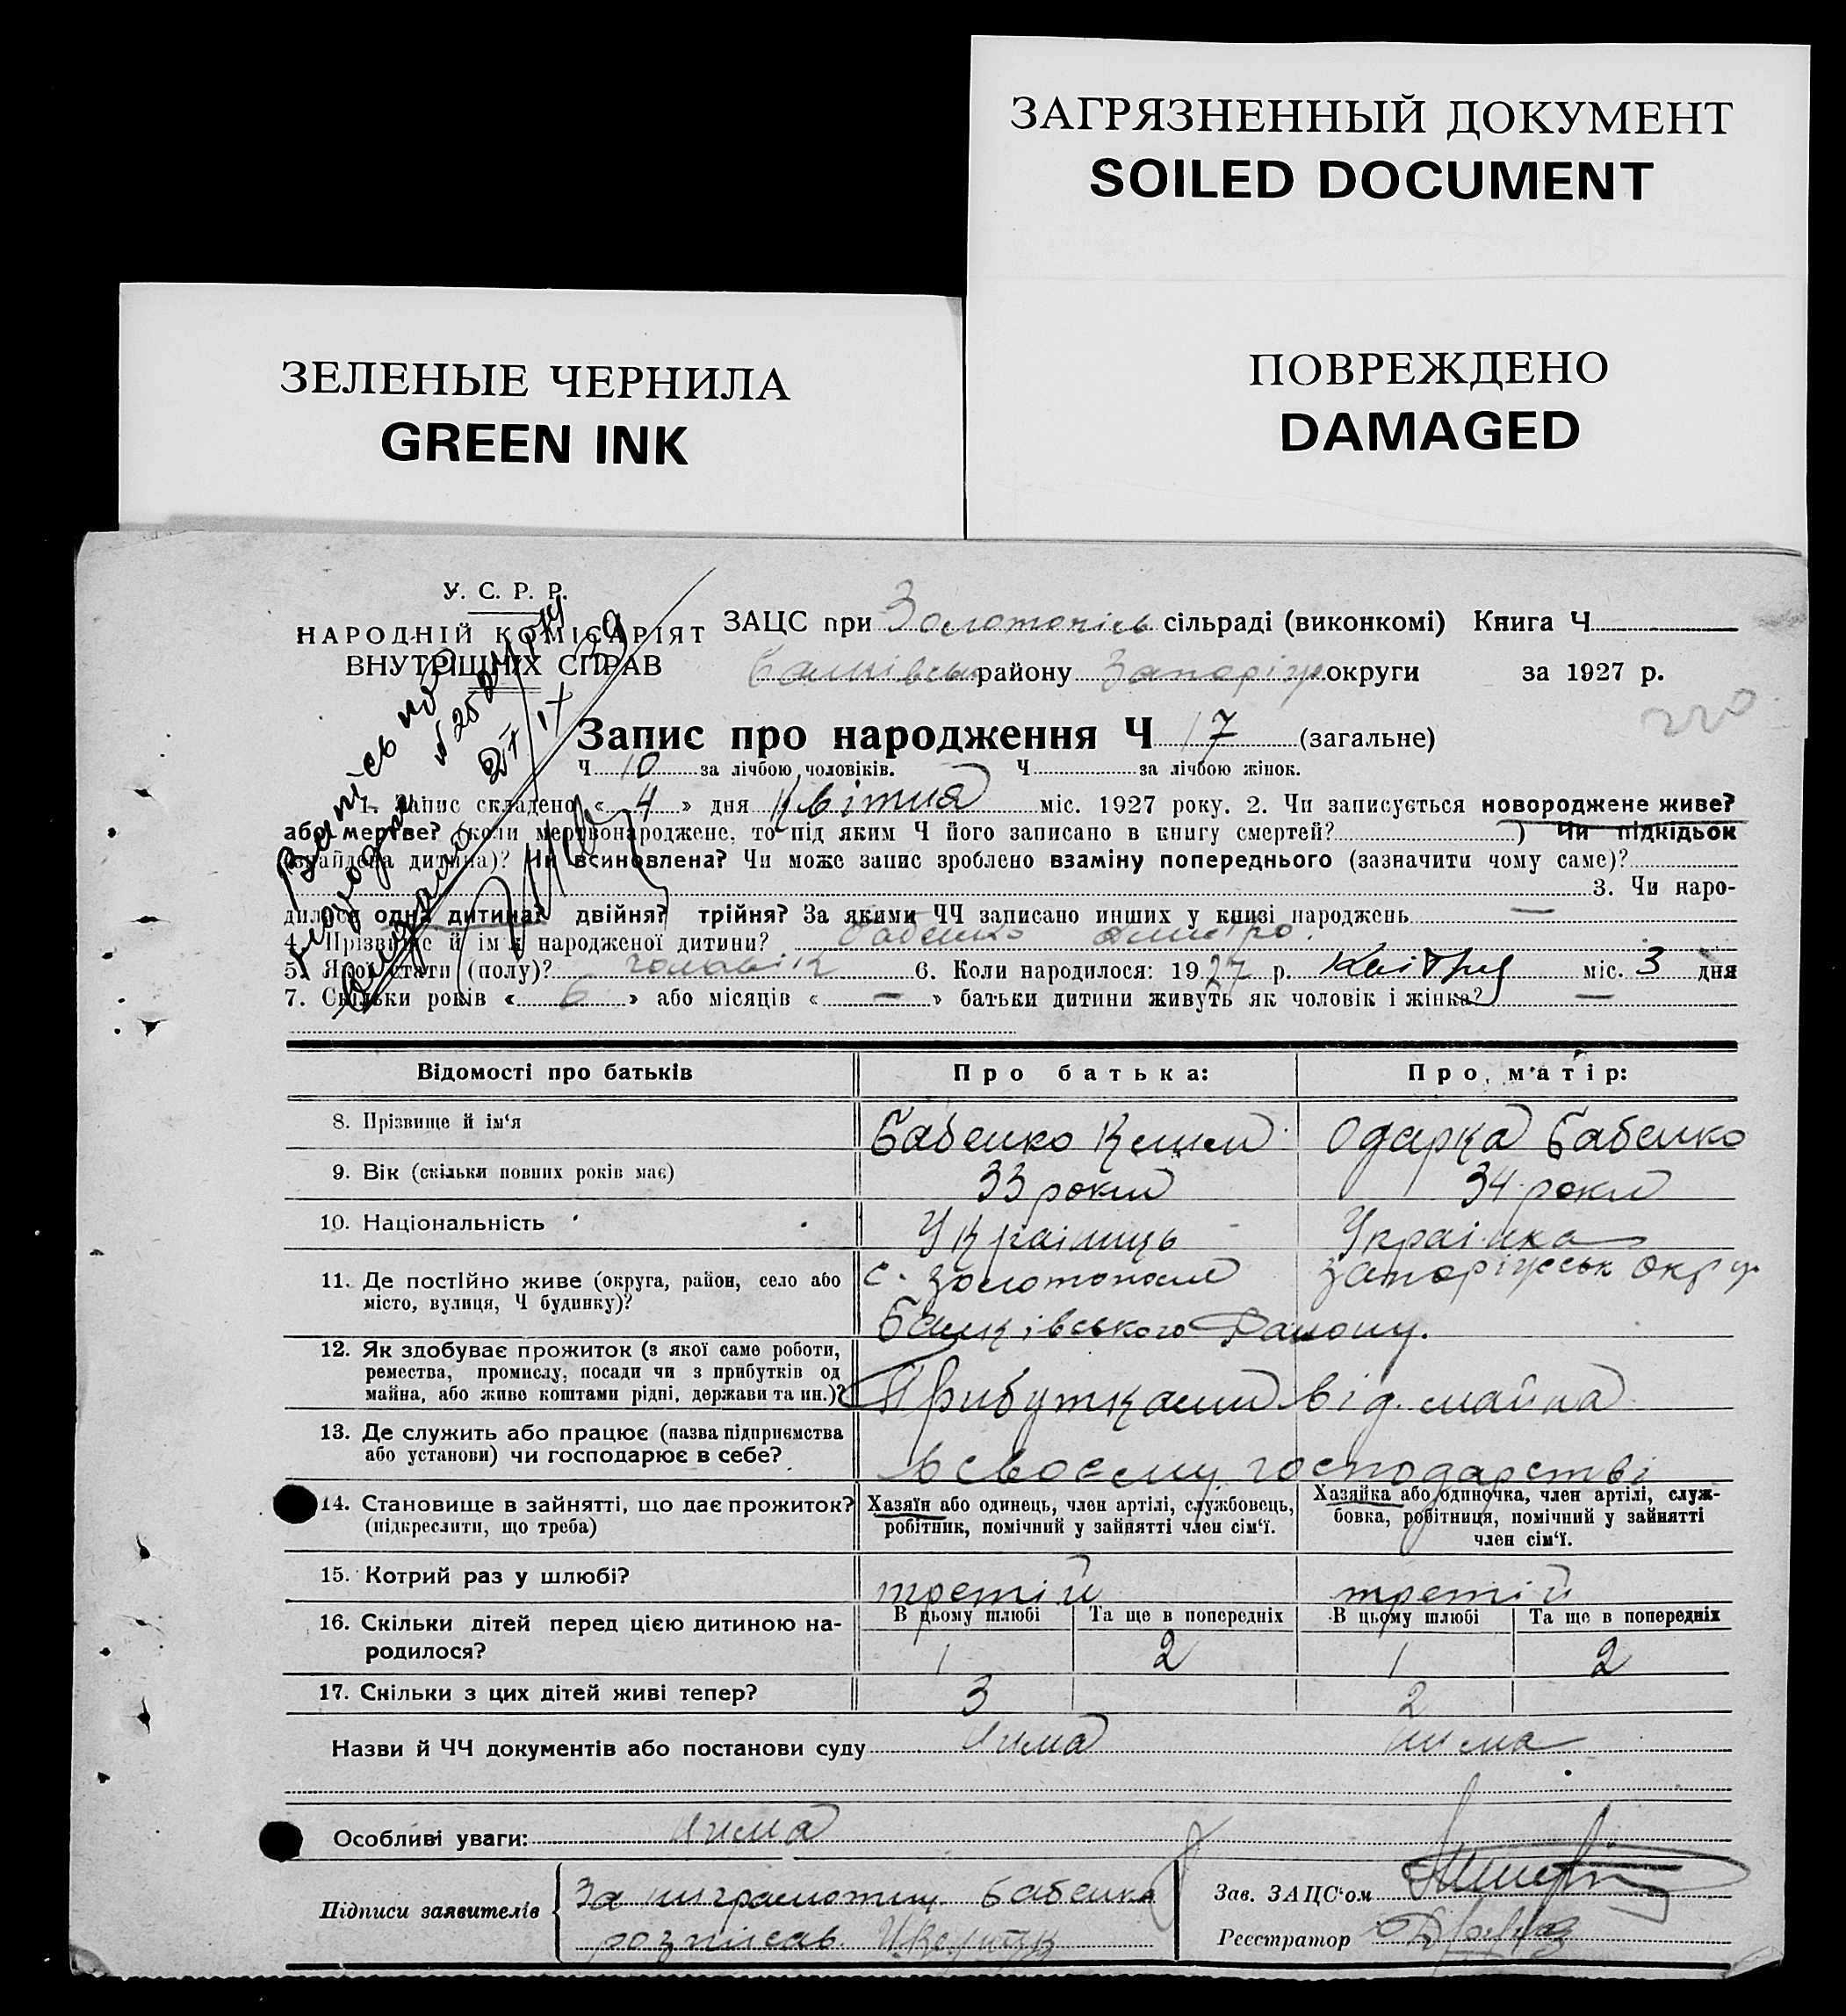 ЗАГРЯЗНЕННЫЙ ДОКУМЕНТ
SOILED DOCUMENT
ПОВРЕЖДЕНО
DAMAGED
ЗЕЛЕНЫЕ ЧЕРНИЛА
GREEN INK
У. С. Р. Р.
НАРОДНІЙ КОМІСАРІЯТ
ВНУТРІШНІХ СПРАВ
ЗАЦС при сільраді (виконкомі) Книга Ч
району Запоріж округи за 1927 р.
220
Запис про народження Ч 17 (загальне)
Ч 10 за лічбою чоловіків. Ч за лічбою жінок.
1. Запис складено « 4 » дня Квітня міс. 1927 року. 2. Чи записується новороджене живе?
або мертве? (коли мертвонароджене, то під яким Ч його записано в книгу смертей? ) Чи підкідьок
(знайдена дитина)? Чи всиновлена? Чи може запис зроблено взаміну попереднього (зазначити чому саме)?
3. Чи наро-
дилося одна дитина? двійня? трійня? За якими ЧЧ записано инших у книзі народжень —
4. Прізвище й ім'я народженої дитини? Бабенко Дмитро.
5. Якої стати (полу)? чоловік 6. Коли народилося: 1927 р. Квітня міс. 3 дня
7. Скільки років « 6 » або місяців « — » батьки дитини живуть як чоловік і жінка? —
Відомості про батьків Про батька: Про матір:
8. Прізвище й ім'я Бабенко Одарка Бабенко
9. Вік (скільки повних років має) 33 роки 34 роки
10. Національність Українець Українка
11. Де постійно живе (округа, район, село або с. Запоріжськ окр
місто, вулиця, Ч будинку)? Району.
12. Як здобуває прожиток (з якої саме роботи,
ремества, промислу, посади чи з прибутків од
майна, або живе коштами рідні, держави та ин.)? Прибутками від майна
13. Де служить або працює (назва підприємства
або установи) чи господарює в себе? в своєму господарстві
14. Становище в зайнятті, що дає прожиток? Хазяїн або одинець, член артілі, службовець, Хазяйка або одиночка, член артілі, служ-
(підкреслити, що треба) робітник, помічний у зайнятті член сім'ї. бовка, робітниця, помічний у зайнятті
член сім'ї.
15. Котрий раз у шлюбі? третій третій
16. Скільки дітей перед цією дитиною на- В цьому шлюбі Та ще в попередніх В цьому шлюбі Та ще в попередніх
родилося? 1 2 1 2
17. Скільки з цих дітей живі тепер? 3 2
Назви й ЧЧ документів або постанови суду нима нима
Особливі уваги: нима
Підписи заявителів За ниграмотну Бабенко
розписав
Зав. ЗАЦС'ом
Реєстратор